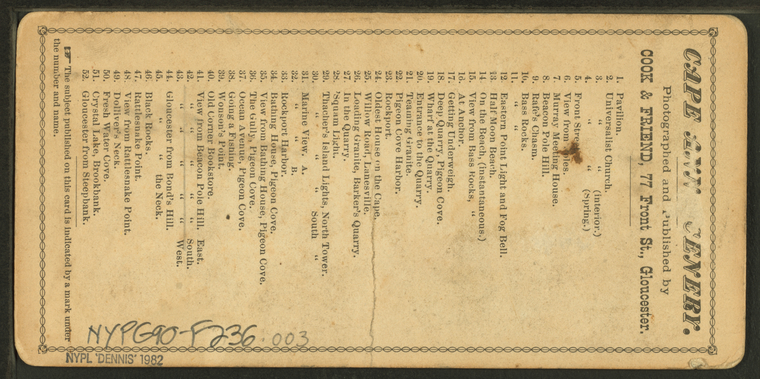 CAPE ANN SCENERY.
Photographed and Published by
COOK & FRIEND, 77 Front St., Gloucester.
1. Pavilion.
2. Universalist Church.
3. " " (interior.)
4. " " (Spring.)
5. Front Street.
6. View from
7. Murray Meeting House.
8. Beacon Pole Hill.
9. Rafe's Chasm.
10. Bass Rocks.
11. " "
12. Eastern Point Light and Fog Bell.
13. Half Moon Beach.
14. On the Beach, (instantaneous.)
15. View from Bass Rocks, "
16. At Anchor.
17. Getting Underweigh.
18. Deep Quarry, Pigeon Cove.
19. Wharf at the Quarry.
20. Entrance to the Quarry.
21. Teaming Granite.
22. Pigeon Cove Harbor.
23. Rockport.
24. Oldest House on the Cape.
25. Willow Road, Lanesville.
26. Loading Granite, Barker's Quarry.
27. In the Quarry.
28. 'Squam Light.
29. Thatcher's Island Lights, North Tower.
30. " " " South "
31. Marine View. A.
32. " " B.
33. Rockport Harbor.
34. Bathing House, Pigeon Cove.
35. View from Bathing House, Pigeon Cove.
36. The Gully, Pigeon Cove.
37. Ocean Avenue, Pigeon Cove.
38. Going a Fishing.
39. Wonson's Point.
40. Old Corner Bookstore.
41. View from Beacon Pole Hill. East.
42. " " " " South.
43. " " " " West.
44. Gloucester from Bond's Hill.
45. " " the Neck.
46. Black Rocks.
47. Rattlesnake Point.
48. View from Rattlesnake Point.
49. Dolliver's Neck.
50. Fresh Water Cove.
51. Crystal Lake, Brookbank.
52. Gloucester from Steepbank.
☞ The subject published on this card is indicated by a mark under
the number and name.
NYPG90-F236 .003
NYPL 'DENNIS' 1982